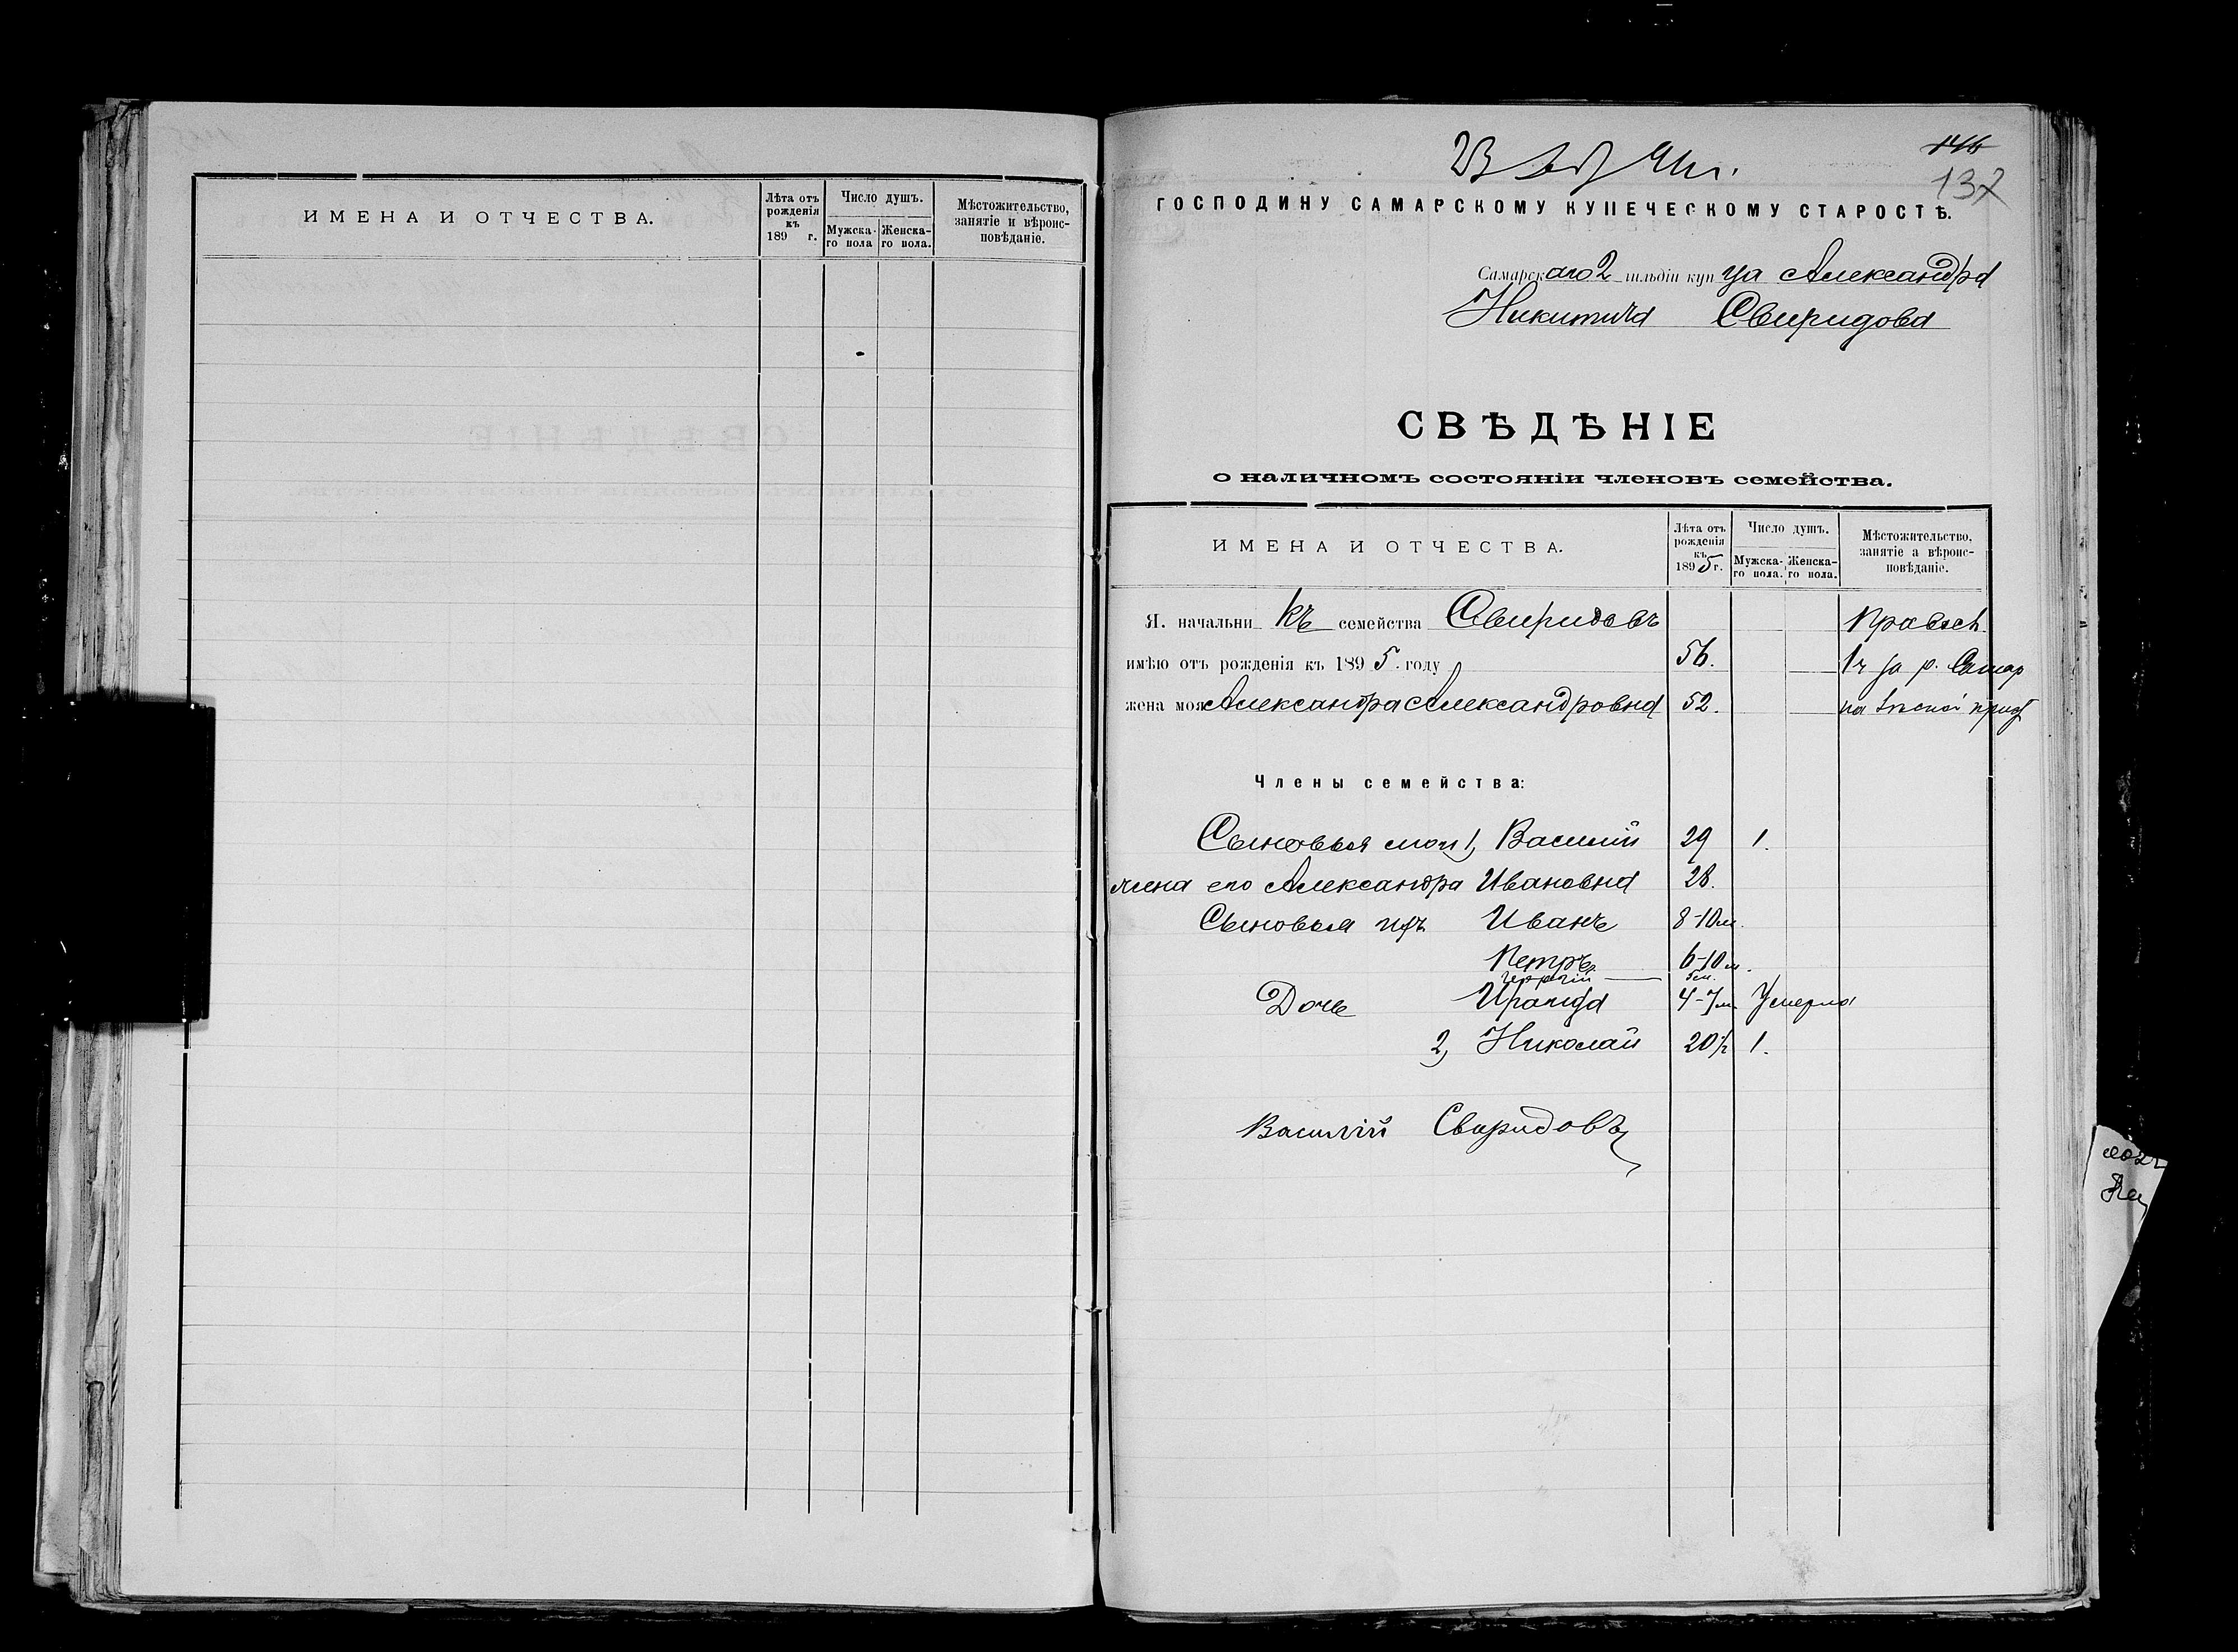 ИМЕНА И ОТЧЕСТВА.
Лѣта отъ рожденія къ 189 г.
Число душъ.
Мужска-го пола
Женска-го пола.
Мѣстожительство, занятіе и вѣроис-повѣданіе.
23
146
137
ГОСПОДИНУ САМАРСКОМУ КУПЕЧЕСКОМУ СТАРОСТѢ.
Самарскаго 2 гильдіи купца Александра
Никитича Свиридова
СВѢДѢНІЕ
о наличномъ состояніи членовъ семейства.
ИМЕНА И ОТЧЕСТВА.
Лѣта отъ рожденія къ 1895 г.
Число душъ.
Мужска-го пола.
Женска-го пола.
Мѣстожительство, занятіе а вѣроис-повѣданіе.
Я. начальникъ семейства Свиридовъ
имѣю отъ рожденія къ 1895. году 56. 1ч за р. Самар
жена моя Александра Александровна 52. на
Члены семейства:
Сыновья мои 1, Василий 29 1.
жена его Александра Ивановна 28.
Сыновья ихъ Иванъ 8-10м.
Петръ 6-10м.
Георгій 5м.
Дочь Ираида 4-7м Умерла
2, Николай 20½ 1.
Василий Свиридовъ